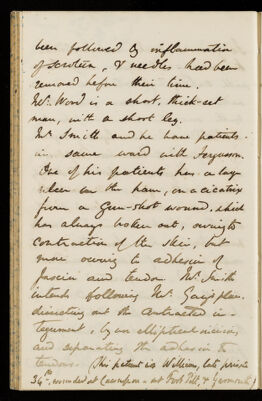 been followed by inflammation
of scrotum, & needles had been
removed before their time.
Mr. Word is a short, thick-set
man, with a short leg.
Mr Smith and he have patients
in same ward with Ferguson.
One of his patients has a large
ulcer on the ham, on a cicatrix
from a Gun-shot wound, which
has always broken out, owing to
contraction of the skin, but
more owing to adhesion of
fascia and tendon. Mr. Smith
intends following Mr. Gay's plan.
dissecting out the contracted in-
tegument, by an elliptical incision,
and separating the adhesion to
tendons. (This patient is William, late private
34th, wounded at - at Fort Pitt, & Yarmouth)